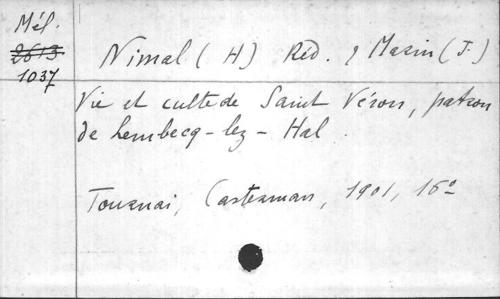 Mél.
2613
1037
Nimal (H) Réd. , Masin (J.)
Vie et culte de Saint Véron, patron
de Lembecq-lez-Hal.
Tournai, Casterman, 1901, 16°